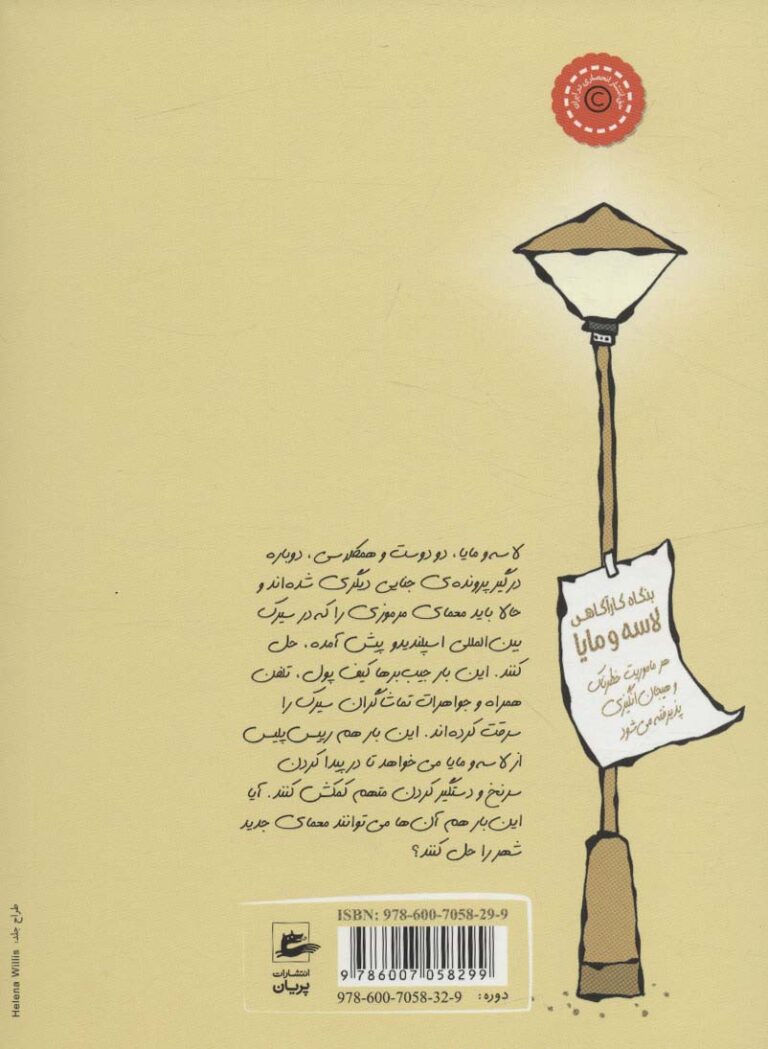 حق انتشار انحصاری در ایران
©
بنگاه کارآگاهی
لاسه و مایا
هر ماموریت خطرناک
و هیجان انگیزی
پذیرفته می‌شود
لاسه و مایا، دو دوست و همکلاسی، دوباره
درگیر پرونده‌ی جنایی دیگری شده‌اند و
حالا باید معمای مرموزی را که در سیرک
بین‌المللی اسپلندیدو پیش آمده، حل
کنند. این بار جیب‌برها کیف پول، تلفن
همراه و جواهرات تماشاگران سیرک را
سرقت کرده‌اند. این بار هم رییس پلیس
از لاسه و مایا می‌خواهد تا در پیدا کردن
سرنخ و دستگیر کردن متهم کمکش کنند. آیا
این‌بار هم آن‌ها می‌توانند معمای جدید
شهر را حل کنند؟
ISBN: 978-600-7058-29-9
9 786007 058299
دوره: 978-600-7058-32-9
انتشارات
پریان
طراح جلد: Helena Willis